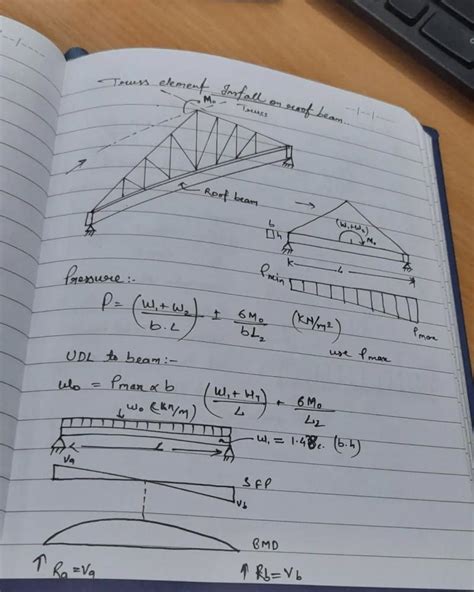 Truss element Install on roof beam..
M₀
Truss
Roof beam
b
h
(W₁+W₂)
M₀
K
L
Pmin
Pmax
Pressure:-
P = (W₁ + W₂ / b.L) ± 6M₀ / bL₂ (KN/m²)
use Pmax
UDL to beam:-
w₀ = Pmax × b (W₁ + W₂ / L) + 6M₀ / L₂
w₀ (KN/m)
L
w₁ = 1.4 γc. (b.h)
Va
SFD
Vb
BMD
Ra = Va
Rb = Vb